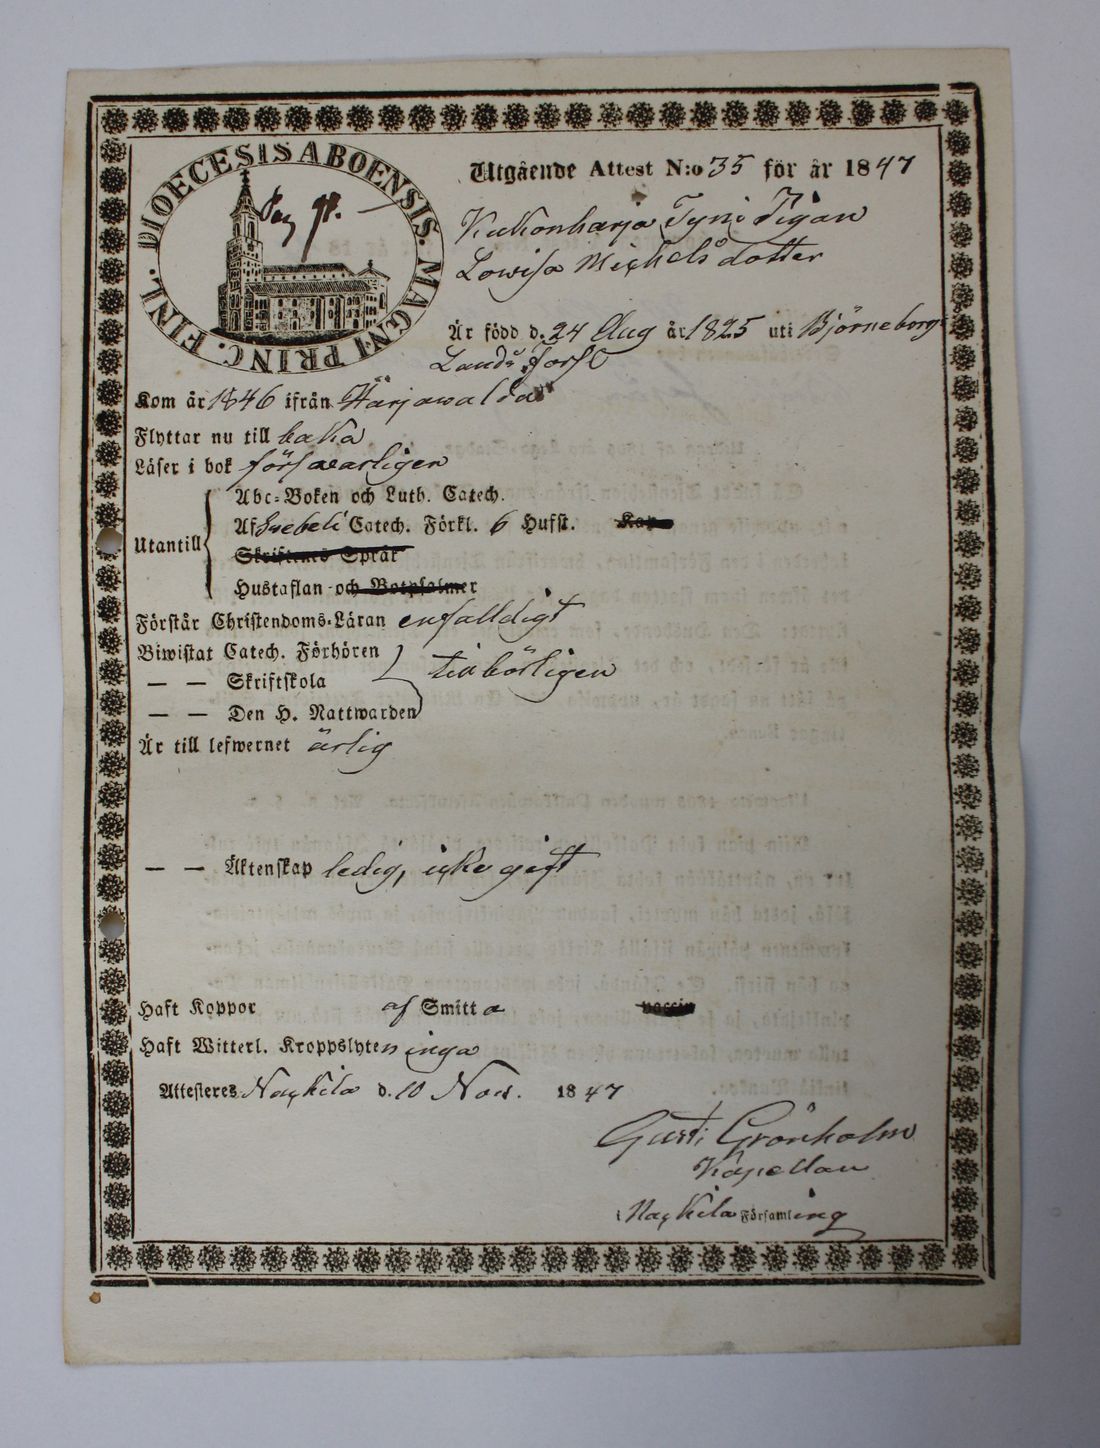 DIOECESIS ABOENSIS. MAGNI PRINC. FINL.
Pag 91.
Utgående Attest N:o 35 för år 1847
Kukonharja Tyni Pigan
Lowisa Michelsdotter
Är född d. 24 Aug år 1825 uti Björneborgs
Lands Förs:
Kom år 1846 ifrån Harjawalda
Flyttar nu till baka
Läser i bok försvarligen
Utantill
Abc-Boken och Luth. Catech.
Af Swebelii Catech. Förkl. 6 Hufst. Kap
Skriftenes Språk
Hustaflan och Botpsalmer
Förstår Christendoms-Läran enfalldigt
Biwistat Catech. Förhören
— — Skriftskola
tillbörligen
— — Den H. Nattwarden
Är till lefwernet ärlig
— — Äktenskap ledig, icke gift
Haft Koppor af Smitta vaccin
Haft Witterl. Kroppslyten inga
Attesteres Nackila d. 10 Nov. 1847
Gust: Grönholm
Kapellan
i Nackila Församling